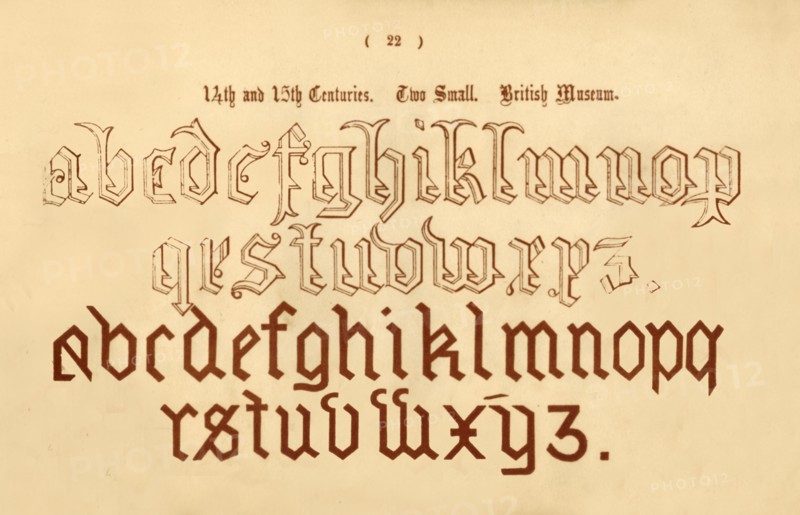 ( 22 )
14th and 15th Centuries. Two Small. British Museum.
abcdefghiklmnop
qrstuvwxyz.
abcdefghiklmnopq
rstuvwxyz.
PHOTO12